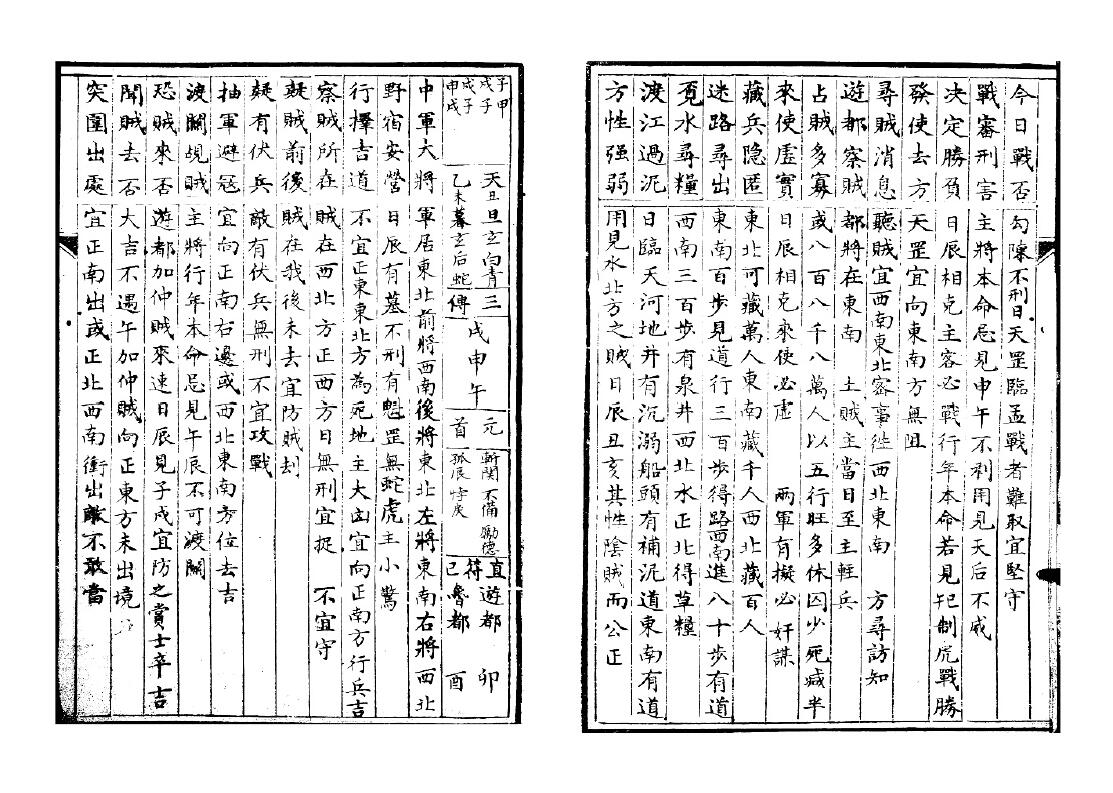 今日戰否 勾陳不刑日天罡臨孟戰者難取宜堅守
戰審刑害 主將本命忌見申午不利用見天后不戚
决定勝負 日辰相克主客必戰行年本命若見 制虎戰勝
發使去方 天罡宜向東南方無阻
尋賊消息 聽賊宜西南東北審事徃西北東南 方尋訪知
遊都察賊 都將在東南 土賊主當日至主輕兵
占賊多寡 或八百八千八萬人以五行旺多休囚少死减半
來使虛實 日辰相克來使必虛 兩軍有擬必奸謀
藏兵隐匿 東北可藏萬人東南藏千人西北藏百人
迷路尋出 東南百步見道行三百步得路西南進八十步有道
覓水尋糧 西南三百步有泉井西北水正北得草糧
渡江過泥 日臨天河地井有沉溺船頭有補泥道東南有道
方性强弱 用見水北方之賊日辰丑亥其性陰賊而公正
子甲
戌子
戌子
申戌
天丑旦玄白青
乙未暮玄后蛇
三傳 戌申午
元首
斬関 不備 勵德
孤辰
直符 巳
遊都 卯
魯都 酉
中軍大將 軍居東北前將西南後將東北左將東南右將西北
野宿安營 日辰有墓不刑有魁罡無蛇虎主小驚
行擇吉道 不宜正東東北方為死地主大凶宜向正南方行兵吉
察賊所在 賊在西北方正西方日無刑宜捉 不宜守
疑賊前後 賊在我後未去宜防賊刦
疑有伏兵 敵有伏兵無刑不宜攻戰
抽軍避寇 宜向正南右邊或西北東南方位去吉
渡關覘賊 主將行年本命忌見午辰不可渡關
恐賊來否 遊都加仲賊來速日辰見子戌宜防之賞士卒吉
聞賊去否 大吉不遇午加仲賊向正東方未出境
突圍出處 宜正南出或正北西南衝出敵不敢當